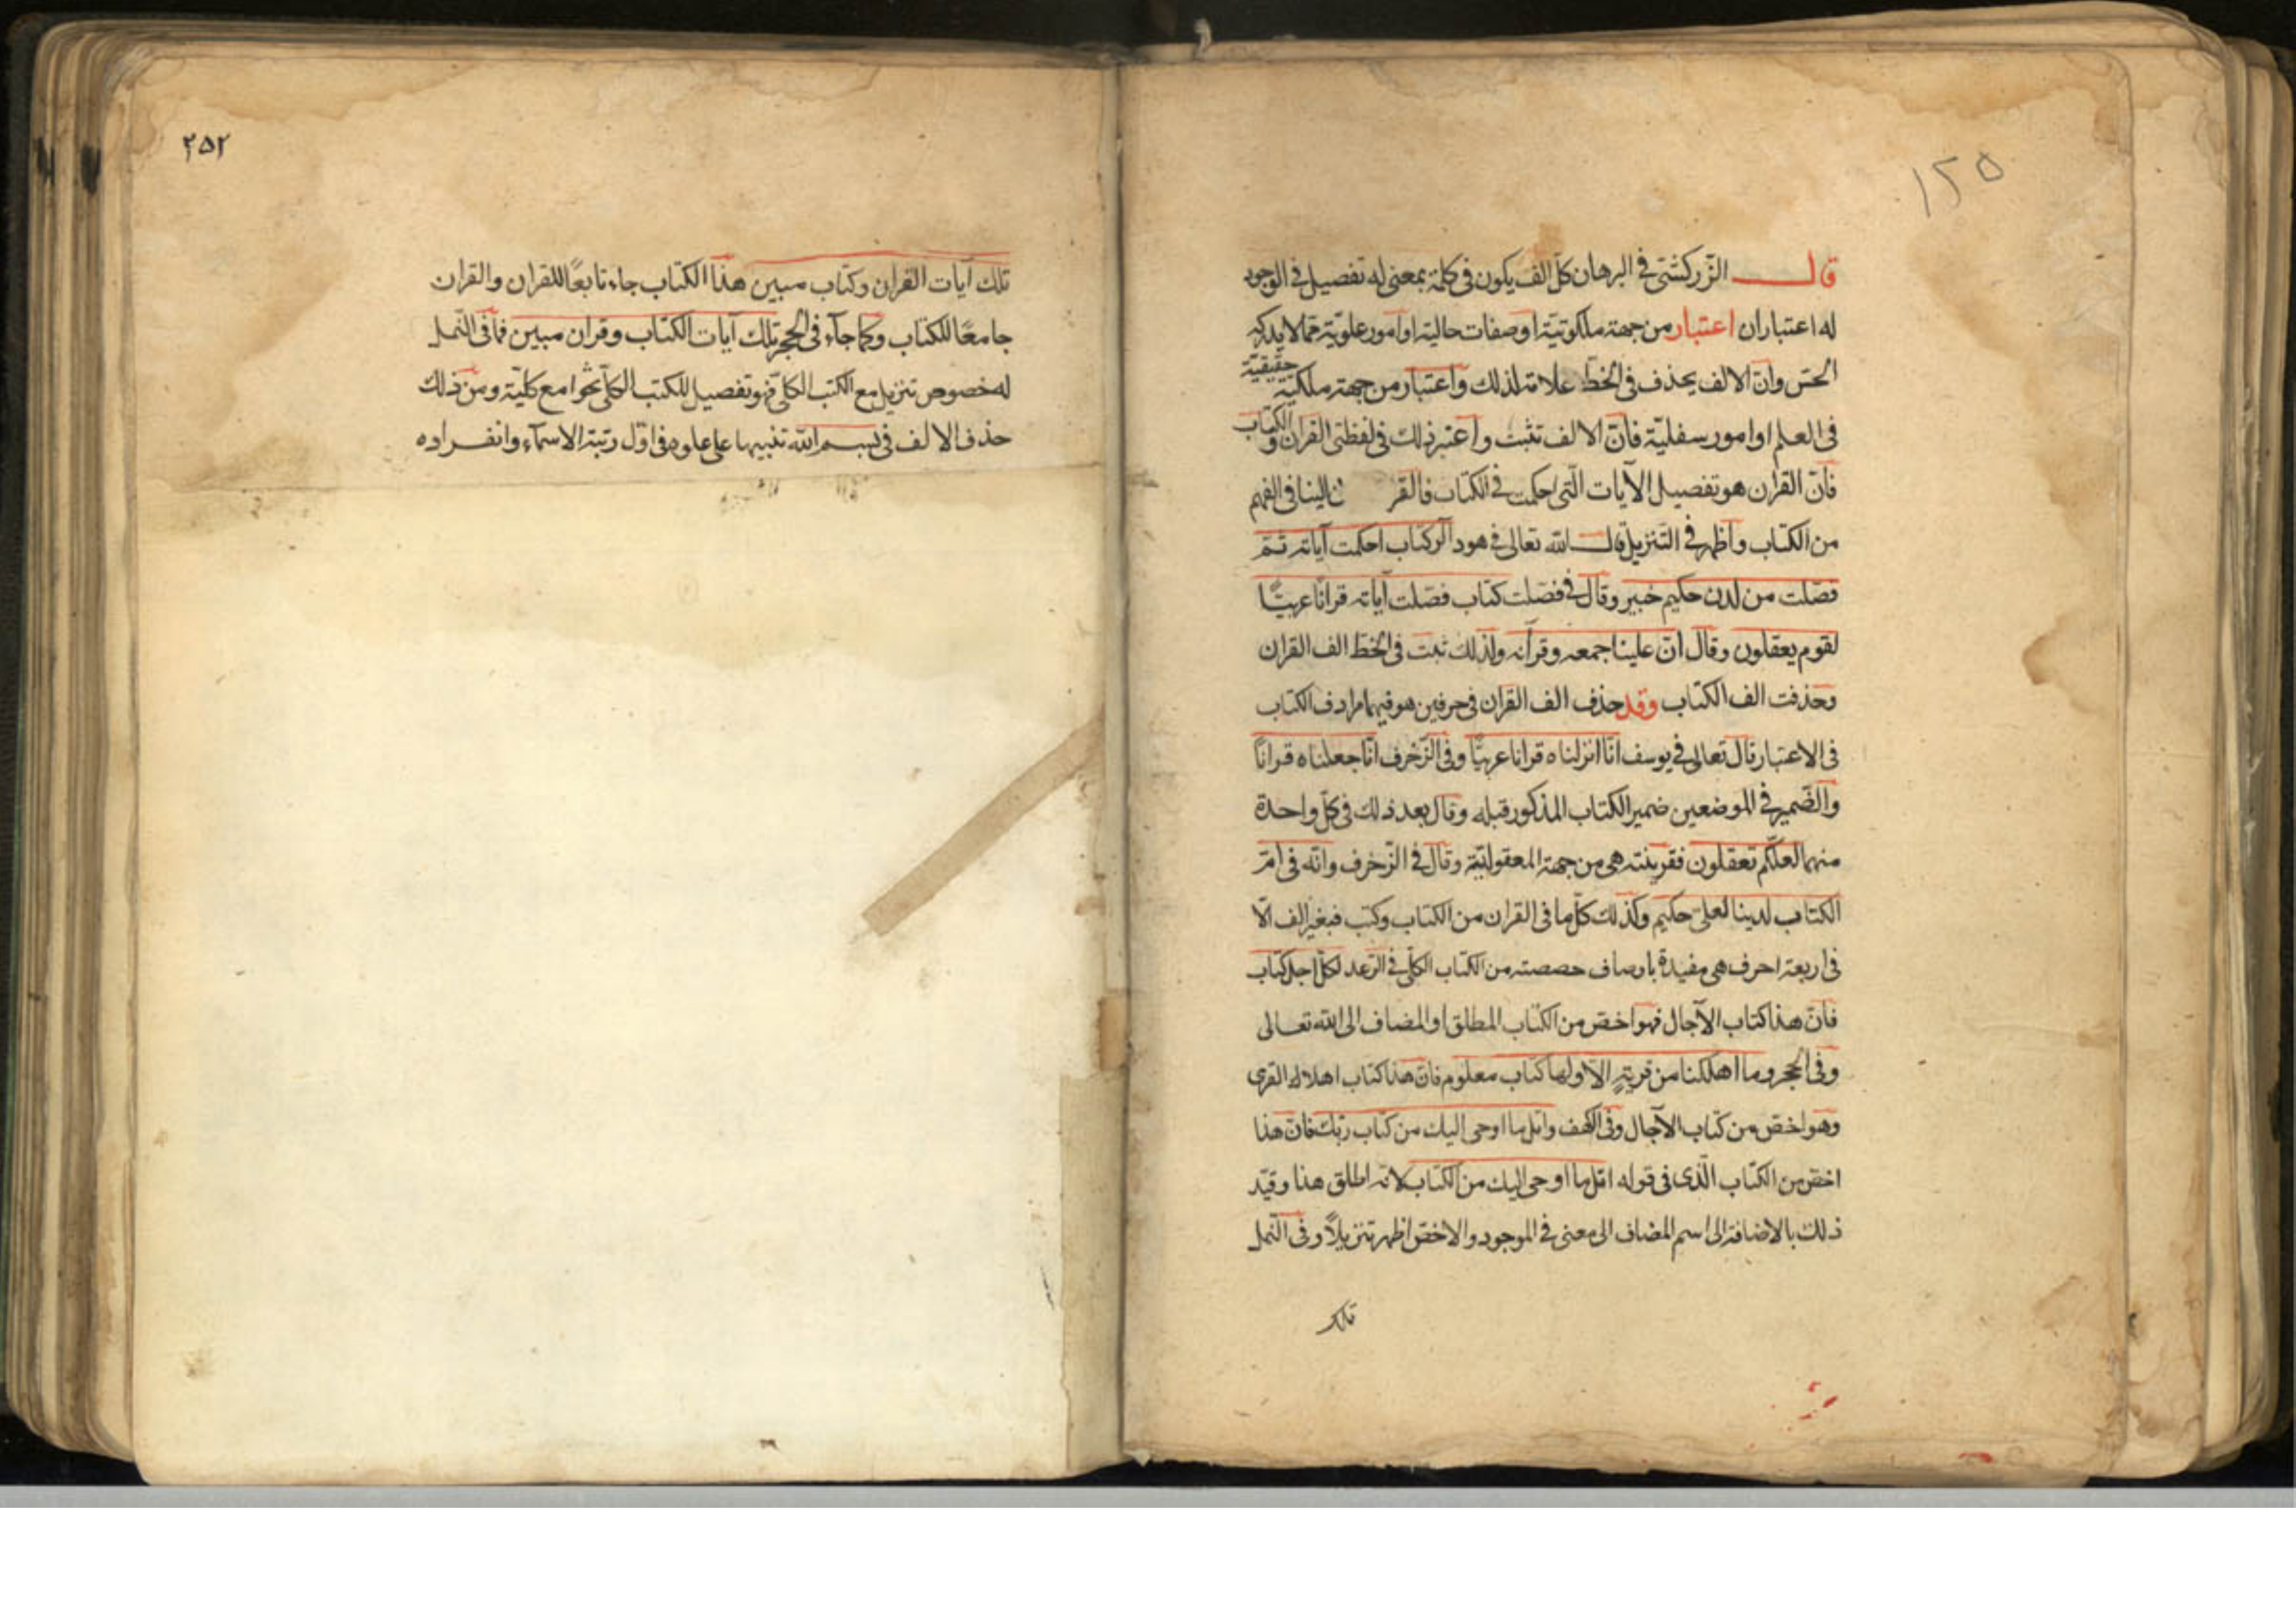 ١٢٥
قال الزّركشى فى البرهان كلّ الف يكون فى كلمة بمعنى له تفصيل فى الوجود
له اعتباران اعتبار من جهة ملكوتيّة او صفات حالية او امور علويّة ممّا لا يدركه
الحسّ وانّ الالف يحذف فى الخطّ علامة لذلك واعتبار من جهة ملكيّة حقيقيّة
فى العلم او امور سفليّة فانّ الالف تثبت واعتبر ذلك فى لفظتى القران والكتاب
فانّ القران هو تفصيل الآيات الّتى احكمت فى الكتاب فالقر الينا فى الفهم
من الكتاب واظهر فى التنزيل قال الله تعالى فى هود الر كتاب احكمت آياته ثمّ
فصّلت من لدن حكيم خبير وقال فى فصّلت كتاب فصّلت آياته قرانًا عربيًّا
لقوم يعقلون وقال انّ علينا جمعه وقرآنه ولذلك ثبت فى الخطّ الف القران
وحذفت الف الكتاب وقد حذف الف القران فى حرفين هو فيهما مرادف الكتاب
فى الاعتبار قال تعالى فى يوسف انّا انزلناه قرانا عربيًّا وفى الزّخرف انّا جعلناه قرانًا
والضّمير فى الموضعين ضمير الكتاب المذكور قبله وقال بعد ذلك فى كلّ واحدة
منهما لعلّكم تعقلون فقرينته هى من جهة المعقوليّة وقال فى الزّخرف وانّه فى امّ
الكتاب لدينا لعلىّ حكيم وكذلك كلّ ما فى القران من الكتاب وكتب فبغير الف الّا
فى اربعة احرف هى مفيدة باوصاف خصصته من الكتاب الكلّى فى الرّعد لكلّ اجل كتاب
فانّ هذا كتاب الآجال فهو اخصّ من الكتاب المطلق او المضاف الى الله تعالى
وفى الحجر وما اهلكنا من قرية الّا ولها كتاب معلوم فانّ هذا كتاب اهلاك القرى
وهو اخصّ من كتاب الآجال وفى الكهف واتل ما اوحى اليك من كتاب ربّك فانّ هذا
اخصّ من الكتاب الّذى فى قوله اتل ما اوحى اليك من الكتاب لانّه اطلق هذا وقيّد
ذلك بالاضافة الى اسم المضاف الى معنى فى الموجود والاخصّ اظهر تنزيلًا وفى النّمل
تلك
٢٥٢
تلك آيات القران وكتاب مبين هذا الكتاب جاء تابعًا للقران والقران
جامعًا للكتاب وكما جآء فى الحجر تلك آيات الكتاب وقران مبين فما فى النّمل
له خصوص تنزيل مع الكتب الكلّى فهو تفصيل للكتب الكلّى بجوامع كليّة ومن ذلك
حذف الالف فى بسم الله تنبيها على علوه فى اوّل رتبة الاسمآء وانفراده